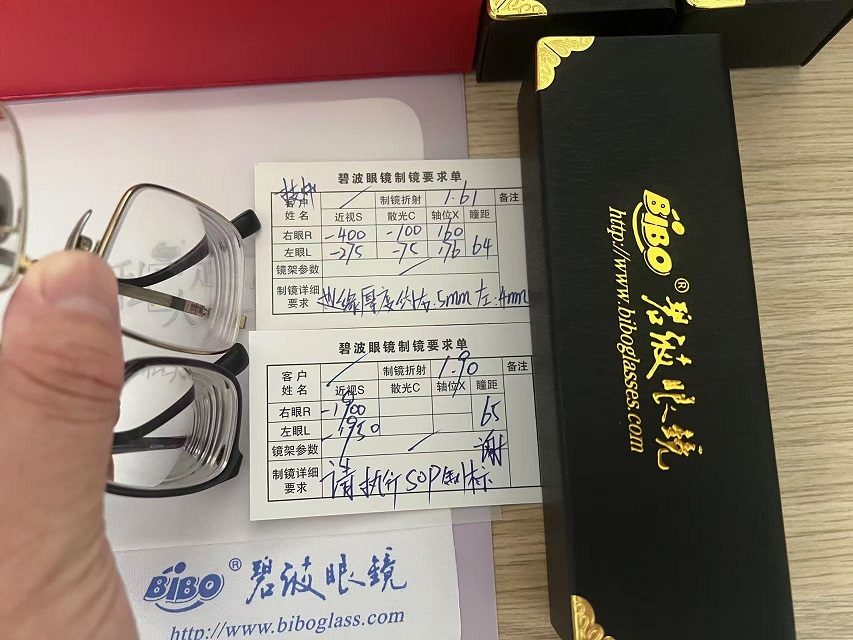 碧波眼镜制镜要求单
客户 制镜折射 1.61 备注
姓名 近视S 散光C 轴位X 瞳距
右眼R -400 -100 160
左眼L -275 -75 176 64
镜架参数
制镜详细 边缘厚度约右:5mm左:4mm
要求
碧波眼镜制镜要求单
客户 制镜折射 1.90 备注
姓名 近视S 散光C 轴位X 瞳距
右眼R -1900 65
左眼L -1950
镜架参数 谢
制镜详细 请执行SOP国标
要求
BiBO® 碧波眼镜
http://www.biboglass.com
BiBO® 碧波眼镜
http://www.biboglasses.com